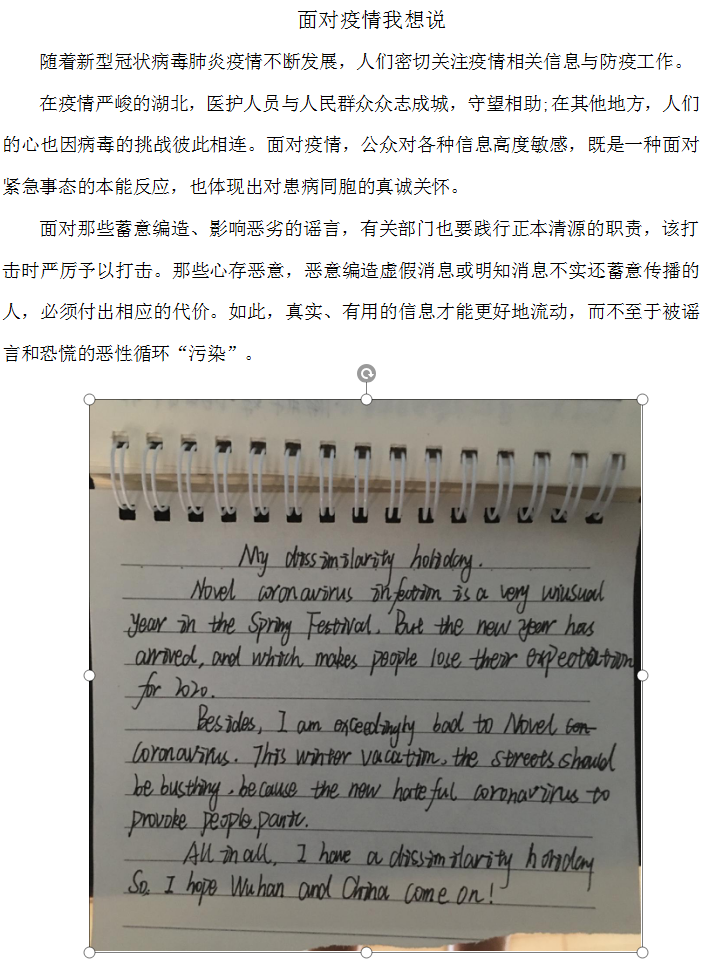 面对疫情我想说
随着新型冠状病毒肺炎疫情不断发展，人们密切关注疫情相关信息与防疫工作。
在疫情严峻的湖北，医护人员与人民群众众志成城，守望相助;在其他地方，人们
的心也因病毒的挑战彼此相连。面对疫情，公众对各种信息高度敏感，既是一种面对
紧急事态的本能反应，也体现出对患病同胞的真诚关怀。
面对那些蓄意编造、影响恶劣的谣言，有关部门也要践行正本清源的职责，该打
击时严厉予以打击。那些心存恶意，恶意编造虚假消息或明知消息不实还蓄意传播的
人，必须付出相应的代价。如此，真实、有用的信息才能更好地流动，而不至于被谣
言和恐慌的恶性循环“污染”。
My dissimilarity holiday.
Novel coronavirus infection is a very unusual
year in the Spring Festival. But the new year has
arrived, and which makes people lose their expectation
for 2020.
Besides, I am exceedingly bad to Novel
Coronavirus. This winter vacation, the streets should
be busthing, because the new hateful coronavirus to
provoke people.panic.
All in all, I have a dissimilarity holiday
So, I hope Wuhan and China come on!